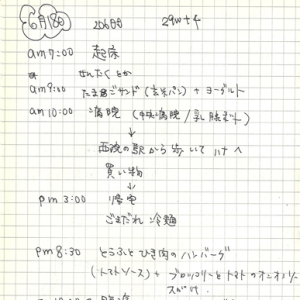 6月18日 206日目 29w+4
am7:00 起床
せんたくとか
am9:00 たまごサンド(玄米パン)+ヨーグルト
am10:00 病院
↓
西院の駅から歩いて
買い物
↓
pm3:00 帰宅
ごまだれ冷麺
pm8:30 とうふとひき肉のハンバーグ
(トマトソース)+ブロッコリーとトマトのオニオンソース